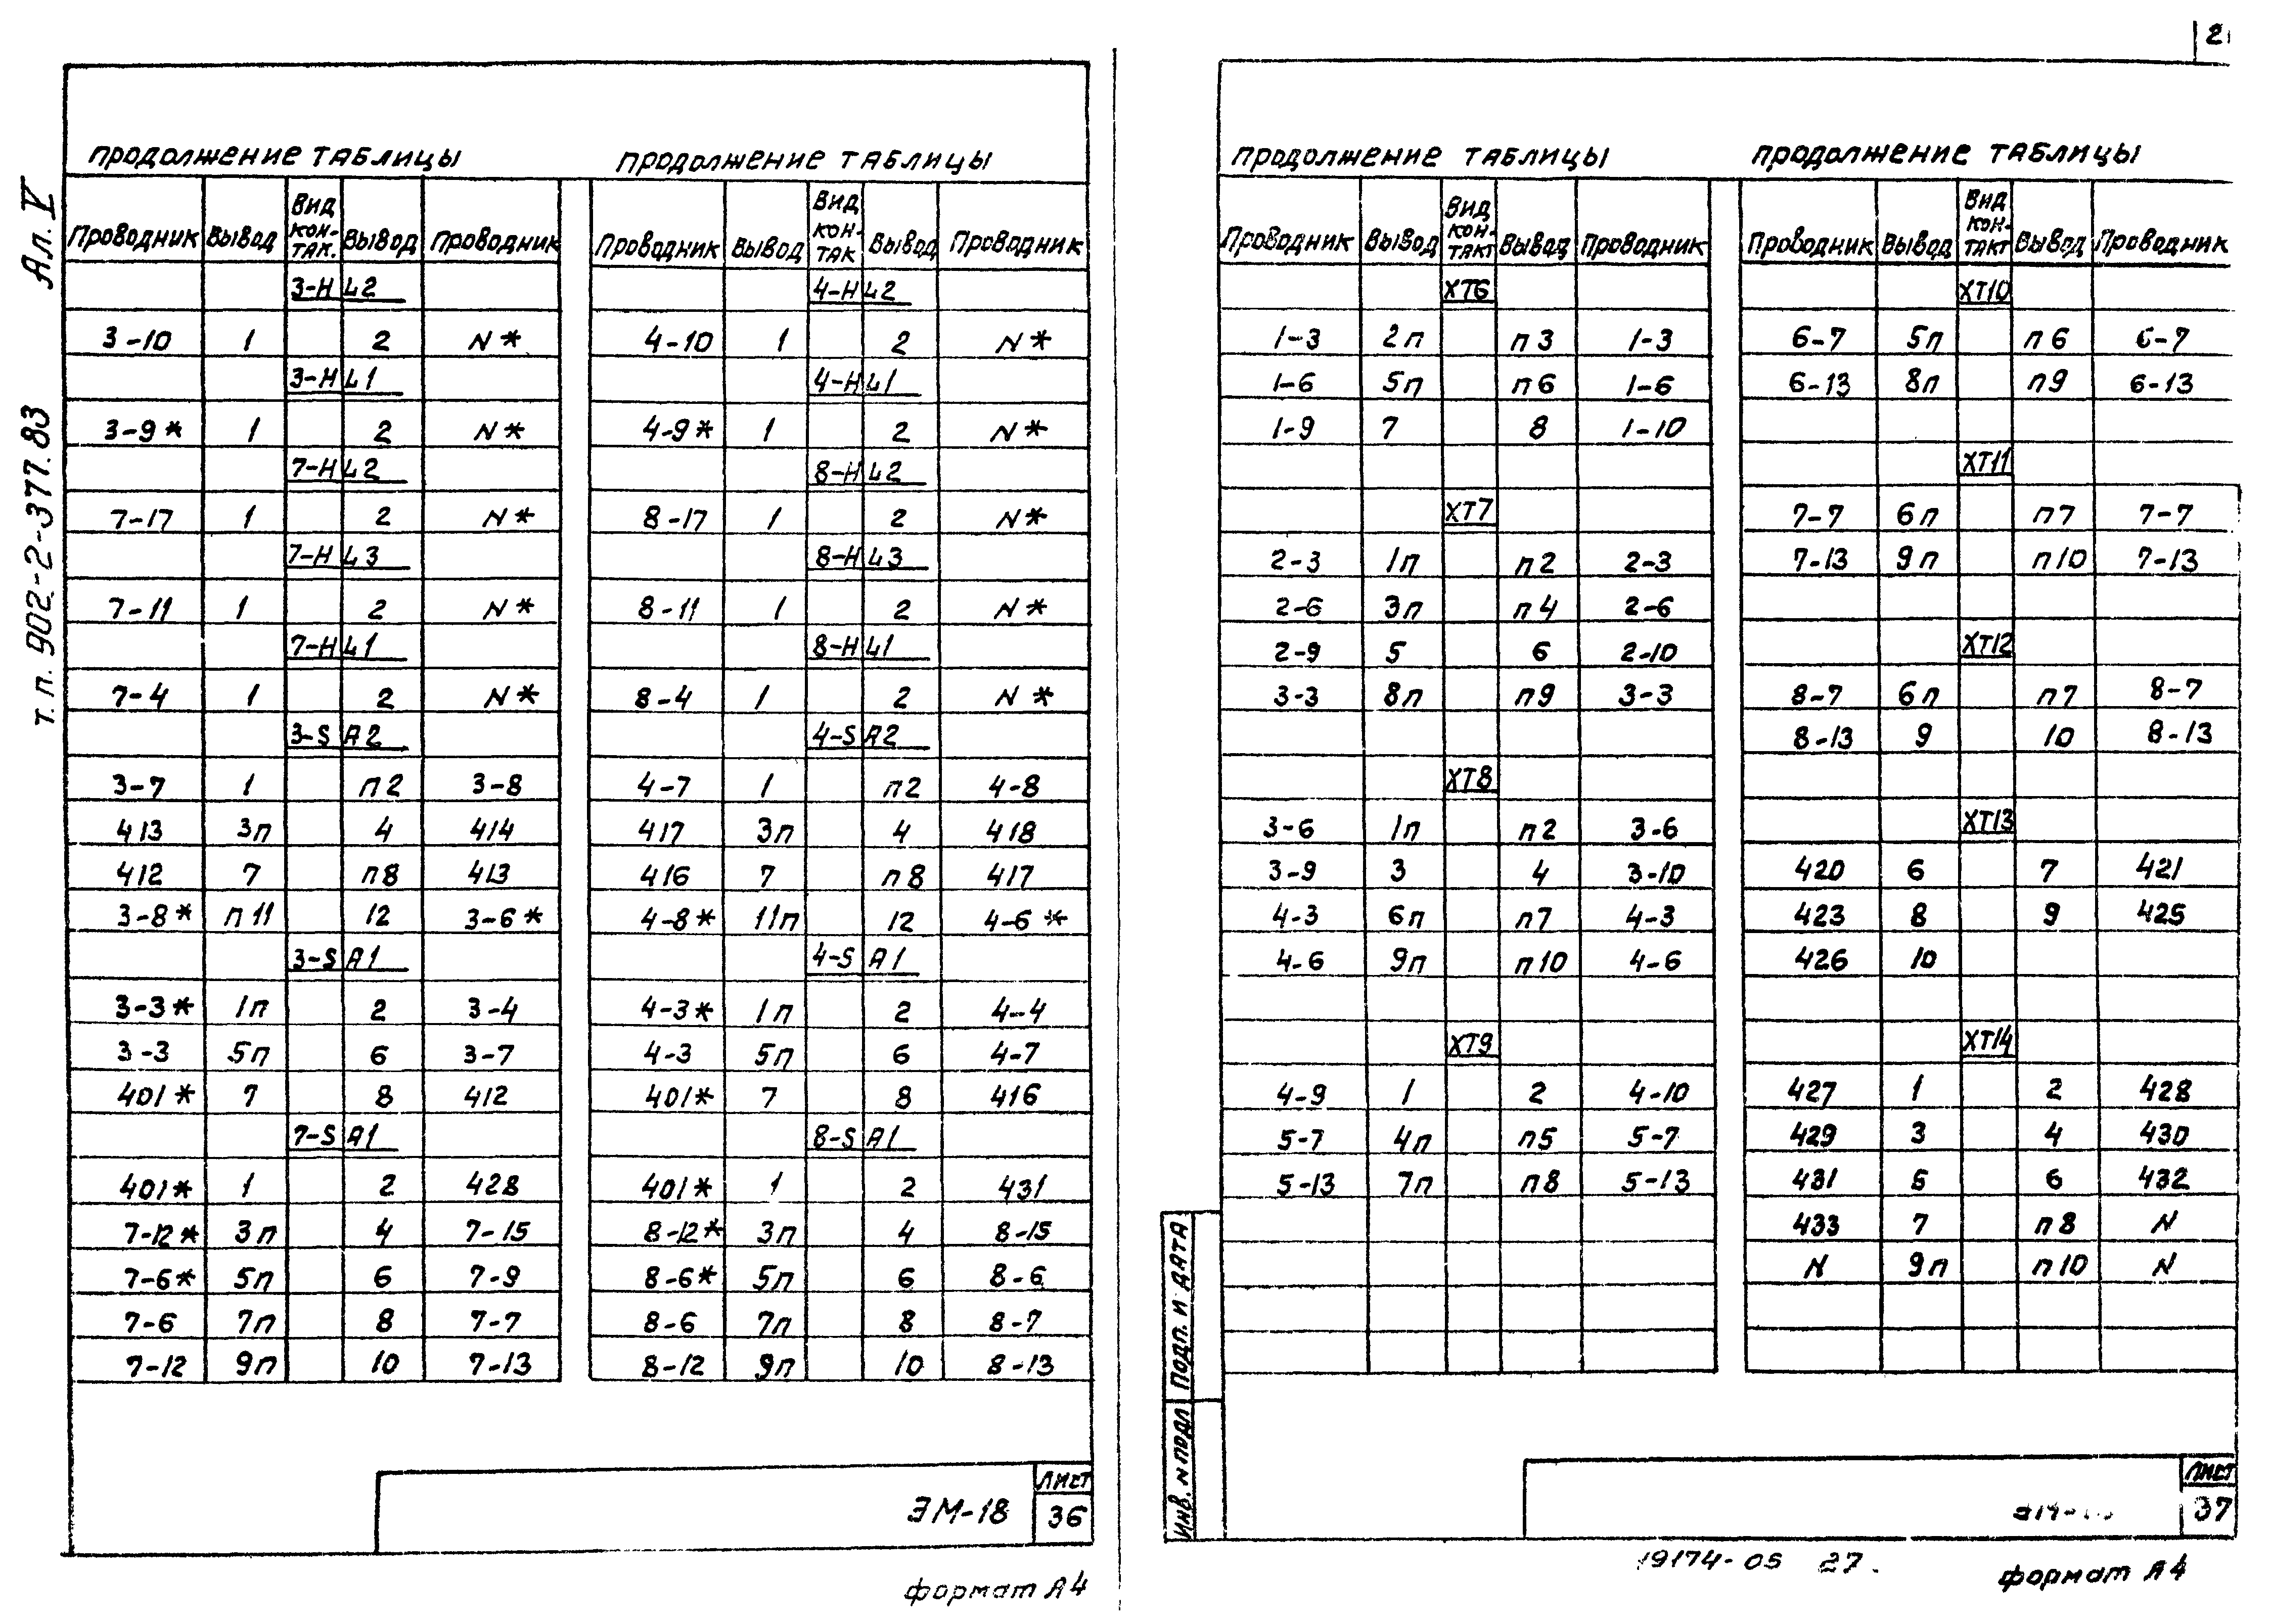 Ал. V
т.п. 902-2-377.83
продолжение таблицы
Проводник Вывод Вид кон-так. Вывод Проводник
3-HL2
3-10 1 2 N*
3-HL1
3-9* 1 2 N*
7-HL2
7-17 1 2 N*
7-HL3
7-11 1 2 N*
7-HL1
7-4 1 2 N*
3-SA2
3-7 1 п2 3-8
413 3п 4 414
412 7 п8 413
3-8* п11 12 3-6*
3-SA1
3-3* 1п 2 3-4
3-3 5п 6 3-7
401* 7 8 412
7-SA1
401* 1 2 428
7-12* 3п 4 7-15
7-6* 5п 6 7-9
7-6 7п 8 7-7
7-12 9п 10 7-13
продолжение таблицы
Проводник Вывод Вид кон-так Вывод Проводник
4-HL2
4-10 1 2 N*
4-HL1
4-9* 1 2 N*
8-HL2
8-17 1 2 N*
8-HL3
8-11 1 2 N*
8-HL1
8-4 1 2 N*
4-SA2
4-7 1 п2 4-8
417 3п 4 418
416 7 п8 417
4-8* 11п 12 4-6*
4-SA1
4-3* 1п 2 4-4
4-3 5п 6 4-7
401* 7 8 416
8-SA1
401* 1 2 431
8-12* 3п 4 8-15
8-6* 5п 6 8-6
8-6 7п 8 8-7
8-12 9п 10 8-13
ЭМ-18
Лист
36
формат А4
продолжение таблицы
Проводник Вывод Вид кон-такт Вывод Проводник
XT6
1-3 2п п3 1-3
1-6 5п п6 1-6
1-9 7 8 1-10
XT7
2-3 1п п2 2-3
2-6 3п п4 2-6
2-9 5 6 2-10
3-3 8п п9 3-3
XT8
3-6 1п п2 3-6
3-9 3 4 3-10
4-3 6п п7 4-3
4-6 9п п10 4-6
XT9
4-9 1 2 4-10
5-7 4п п5 5-7
5-13 7п п8 5-13
продолжение таблицы
Проводник Вывод Вид кон-такт Вывод Проводник
XT10
6-7 5п п6 6-7
6-13 8п п9 6-13
XT11
7-7 6п п7 7-7
7-13 9п п10 7-13
XT12
8-7 6п п7 8-7
8-13 9 10 8-13
XT13
420 6 7 421
423 8 9 425
426 10
XT14
427 1 2 428
429 3 4 430
431 5 6 432
433 7 п8 N
N 9п п10 N
Подп. и дата
Инв. N подл
Лист
37
19174-05 27.
формат А4